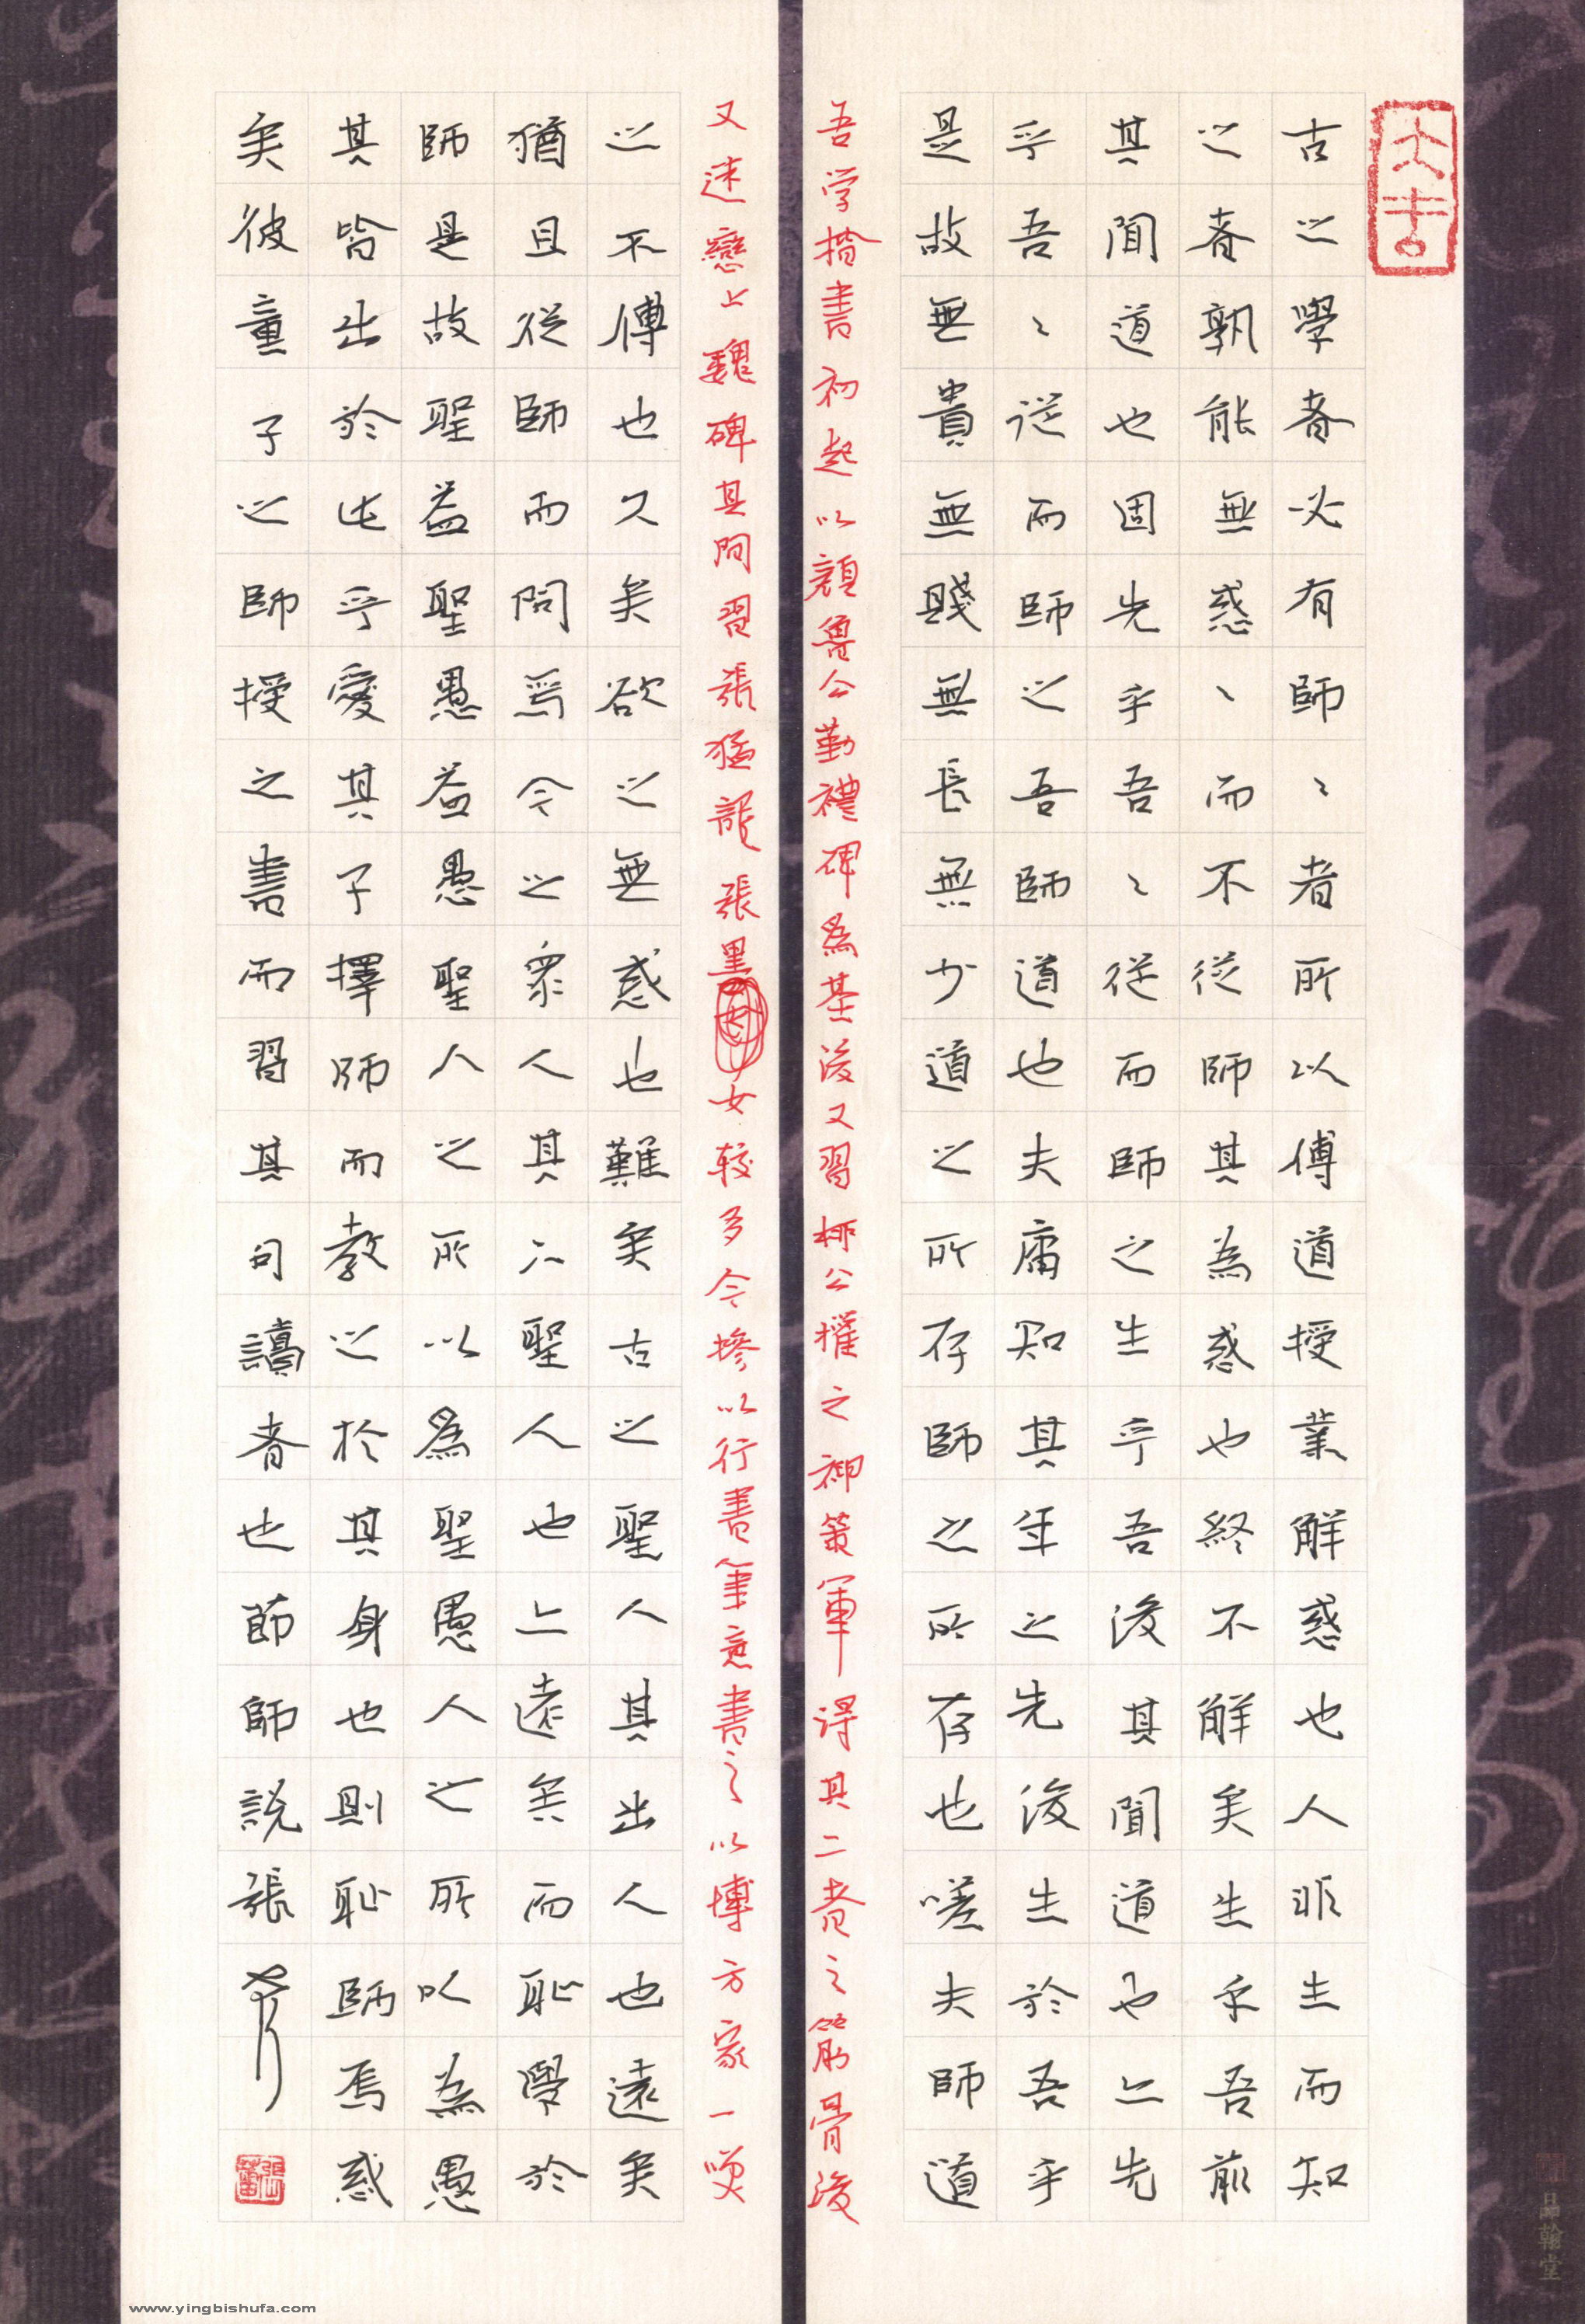 大吉
古之學者必有師〻者所以傳道授業解惑也人非生而知
之者孰能無惑〻而不從師其為惑也終不解矣生乎吾前
其聞道也固先乎吾〻從而師之生乎吾後其聞道也亦先
乎吾〻從而師之吾師道也夫庸知其年之先後生於吾乎
是故無貴無賤無長無少道之所存師之所存也嗟夫師道
吾学楷書初起以顏魯公勤禮碑為基後又習柳公權之神策軍得其二者之筋骨後
又迷戀上魏碑其間習張猛龍張黑女較多今摻以行書筆意書之以博方家一笑
之不傳也久矣欲之無惑也難矣古之聖人其出人也遠矣
猶且從師而問焉今之眾人其下聖人也亦遠矣而恥學於
師是故聖益聖愚益愚聖人之所以為聖愚人之所以為愚
其皆出於此乎愛其子擇師而教之於其身也則恥師焉惑
矣彼童子之師授之書而習其句讀者也節師說張
品翰堂
www.yingbishufa.com